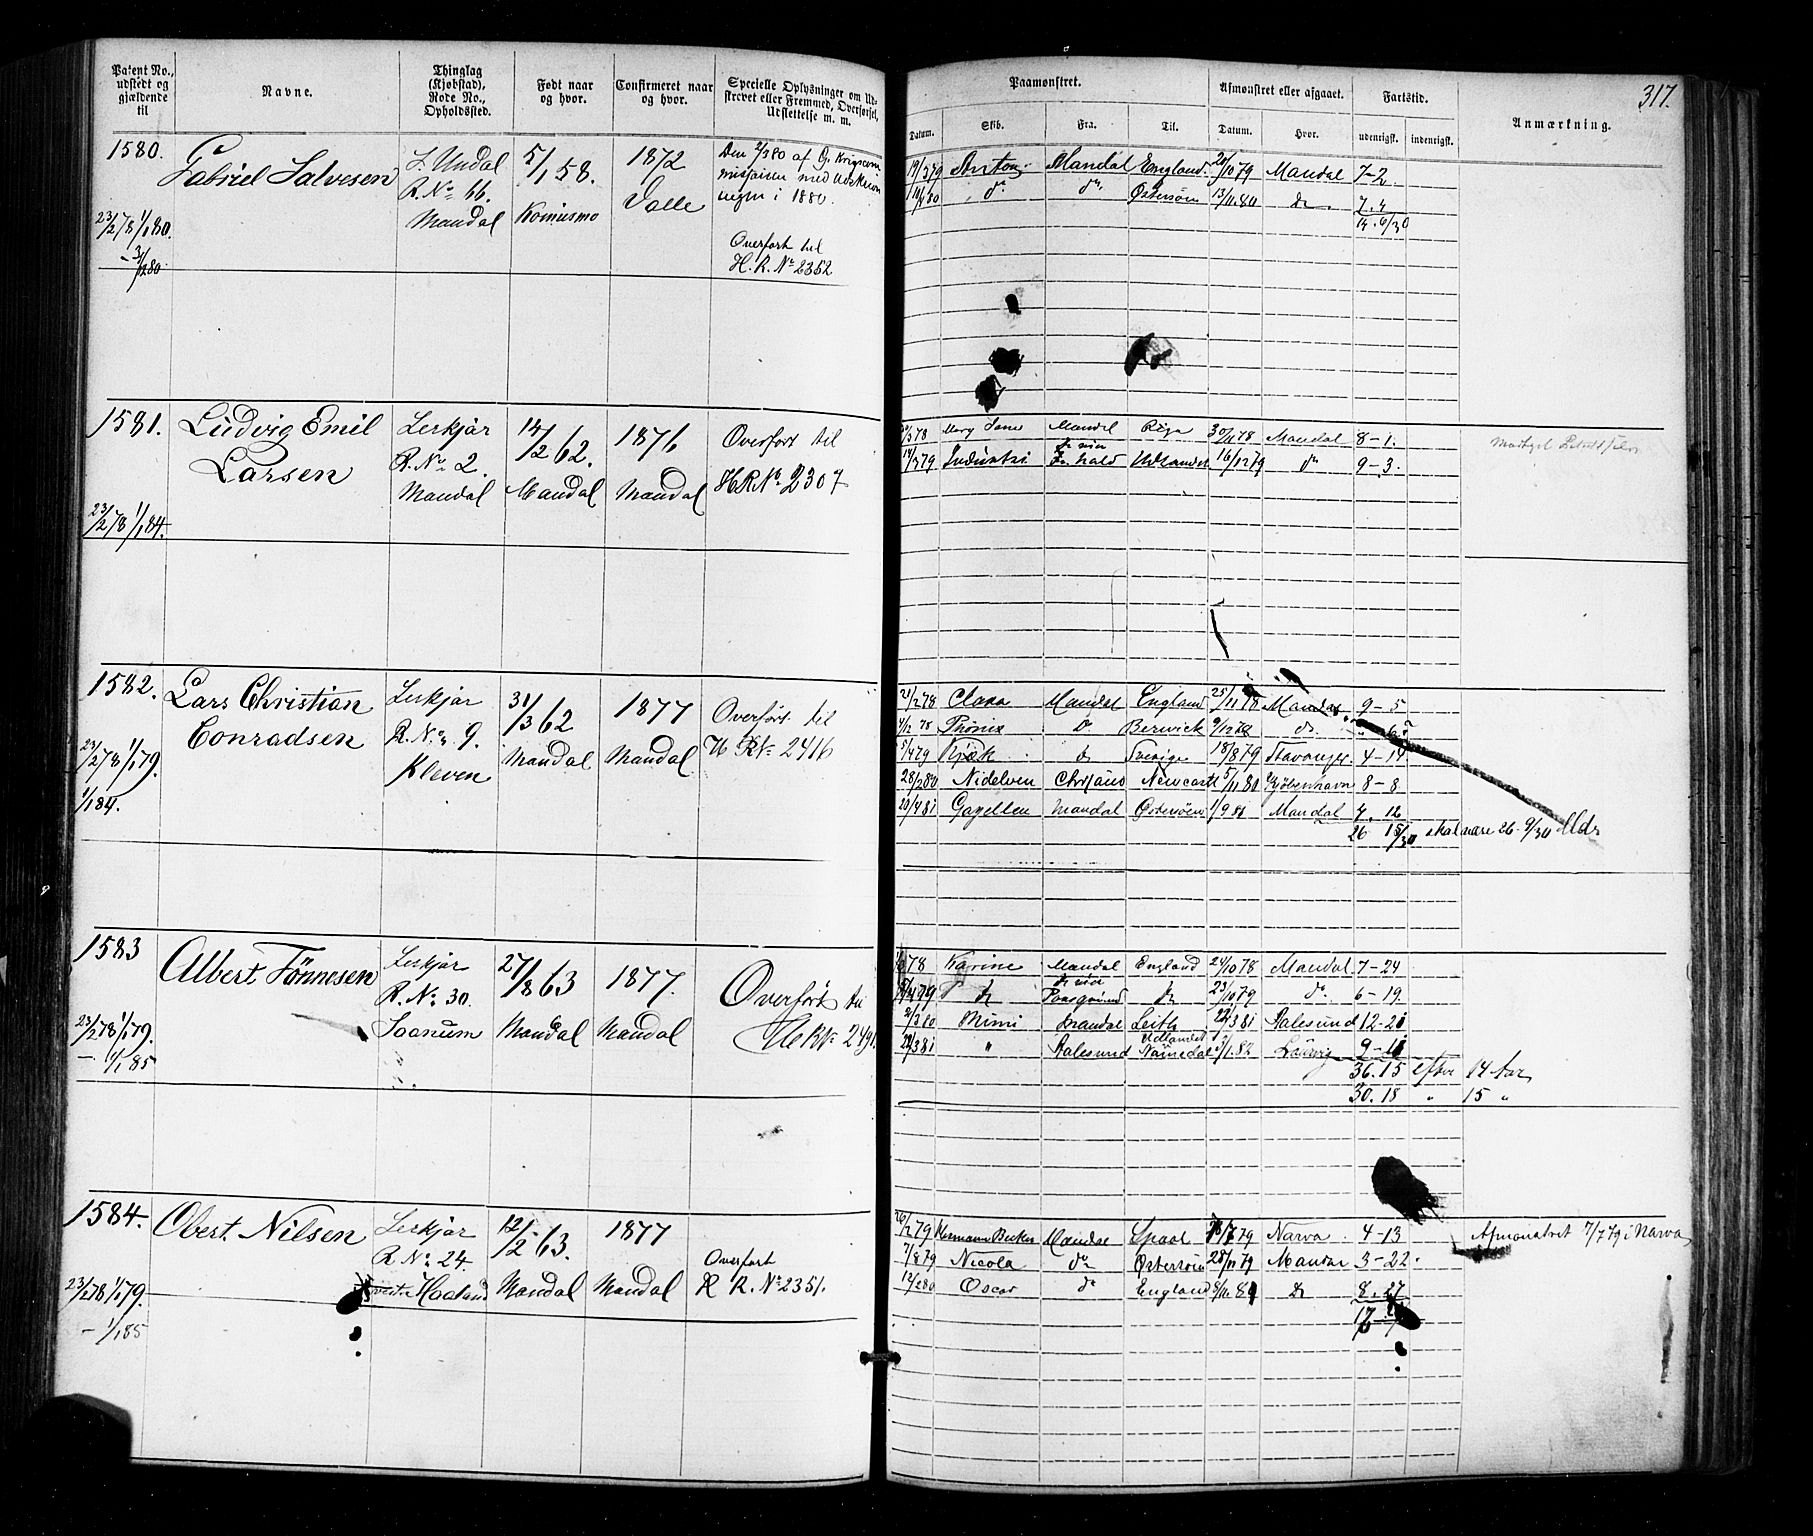 Patent No., udstedt og gjældende til
Navne.
Thinglag (Kjøbstad), Rode No., Opholdssted.
Født naar og hvor.
Confirmeret naar og hvor.
Specielle Oplysninger om Ud-
skrevet eller Fremmed, Overførsel,
Udslettelse m. m.
Paamønstret.
Afmønstret eller afgaaet.
Fartstid.
Anmærkning.
317.
Datum.
Skib.
Fra.
Til.
Datum.
Hvor.
udenrigst.
indenrigst.
1580.
Gabriel Salvesen
S. Undal
R. No 66.
Mandal
5/1 58.
1872
Valle
Den 2/3 80 af G.
i 1880.
Overført til
H. R. No 2352
23/2 78 1/1 80.
- 3/1 280
19/3 79 Mandal England 10 79 Mandal 7-2
do do Østersøen 13/11 80 do 7.4
14. 6/30
1581.
Ludvig Emil
Larsen
Lerkjær
R. No 2.
Mandal
14/2 62.
Mandal
1876
Mandal
Overført til
H R No 2307
23/2 78 1/1 84.
78 Mary Jane Mandal Riga 30/11 78 Mandal 8-1.
14/3 79 Industri Udlandet 16/12 79 do 9-3.
1582.
Lars Christian
Conradsen
Lerkjær
R. No 9.
Kleven
31/3 62
Mandal
1877
Mandal
Overført til
H R No 2416
23/2 78 1/1 79.
1/1 84.
21/2 78 Clara Mandal England 25/11 78 Mandal 9-5
4/12 78 Phönix do Berwick 9/12 78 do
5/4 79 do Sverige 18/8 79 Stavanger 4-14
28/2 80 Nidelven Chrsand Newcastl 5/11 80 Kjöbenhavn 8-8
20/4 81 Gazellen Mandal Østersöen 1/9 81 Mandal 4. 12
26 15/30 skal være 26. 9/30 Mdr
1583
Albert Tönnesen
Lerkjær
R. No 30.
Soanum
27/8 63
Mandal
1877.
Mandal
Overført til
H R No 2491
23/2 78 1/1 79.
- 1/1 85
78 Karine Mandal England 24/10 78 Mandal 7-24
4 79 do Porsgrund do 23/10 79 do 6-19.
2/3 80 Mimi Mandal Leith 22/3 81 Aalesund 12-21
22/3 81 " Aalesund Udlandet 1 82 Larvig 9-11
36. 15 efter 14 Aar
30. 18 " 15 "
1584.
Obert Nilsen
Lerkjær
R No 24.
vestre Haaland
12/5 63.
Mandal
1877
Mandal
Overført
R R. No 2351.
23/2 78 1/1 79.
- 1/1 85
26/2 79 Hermann Becker Mandal 7 79 Narva 4-13 Afmönstret 7/7 79 i Narva
7/8 79 Nicola do Østersöen 28/11 79 Mandal 3-22.
12/2 80 Oscar do England 8/11 8 do 8.27